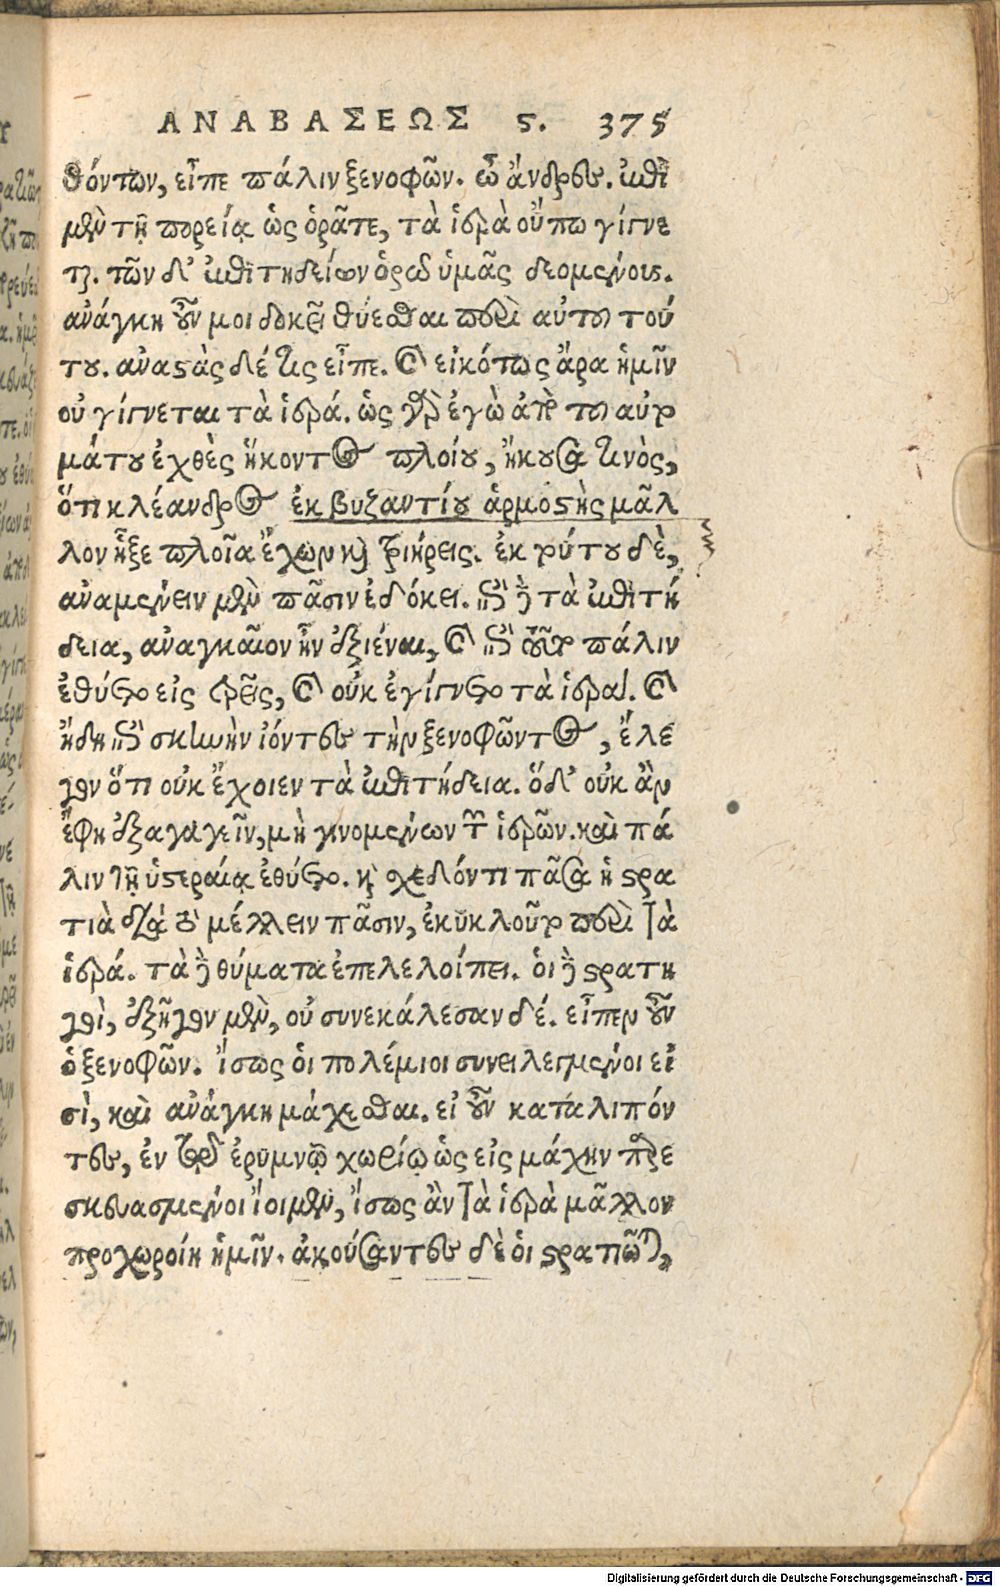 ΑΝΑΒΑΣΕΩΣ ϛ. 375
θόντων, εἶπε πάλιν ξενοφῶν. ὦ ἄνδρες. ἐπὶ
μὲν τῇ πορείᾳ ὡς ὁρᾶτε, τὰ ἱερὰ οὔπω γίγνε
ται. τῶν δ' ἐπιτηδείων ὁρῶ ὑμᾶς δεομένους.
ἀνάγκη οὖν μοι δοκεῖ θύεσθαι περὶ αὐτοῦ τού
του. ἀναστὰς δέ τις εἶπε. καὶ εἰκότως ἄρα ἡμῖν
οὐ γίγνεται τὰ ἱερά. ὡς γὰρ ἐγὼ ἀπὸ τοῦ αὐτ
μάτου ἐχθὲς ἥκοντος πλοίου, ἤκουσα τινὸς,
ὅτι κλέανδρος ἐκ βυζαντίου ἁρμοστὴς μᾶλ
λον ἧξε πλοῖα ἔχων καὶ τριήρεις. ἐκ τούτου δὲ,
ἀναμένειν μὲν πᾶσιν ἐδόκει. ἐπὶ δὲ τὰ ἐπιτή
δεια, ἀναγκαῖον ἦν ἐξιέναι, καὶ ἐπὶ τούτῳ πάλιν
ἐθύετο εἰς τρεῖς, καὶ οὐκ ἐγίγνετο τὰ ἱερά. καὶ
ἤδη ἐπὶ σκηνὴν ἰόντες τὴν ξενοφῶντος, ἔλε
γον ὅτι οὐκ ἔχοιεν τὰ ἐπιτήδεια. ὁ δ' οὐκ ἂν
ἔφη ἐξαγαγεῖν, μὴ γινομένων τῶν ἱερῶν. καὶ πά
λιν τῇ ὑστεραίᾳ ἐθύετο. καὶ σχεδόν τι πᾶσα ἡ στρα
τιὰ διὰ τὸ μέλλειν πᾶσιν, ἐκυκλοῦντο περὶ τὰ
ἱερά. τὰ δὲ θύματα ἐπελελοίπει. οἱ δὲ στρατη
γοὶ, ἐξῆγον μὲν, οὐ συνεκάλεσαν δέ. εἶπεν οὖν
ὁ ξενοφῶν. ἴσως οἱ πολέμιοι συνειλεγμένοι εἰ
σὶ, καὶ ἀνάγκη μάχεσθαι. εἰ οὖν καταλιπόν
τες, ἐν τῷ ἐρυμνῷ χωρίῳ ὡς εἰς μάχην παρε
σκευασμένοι ἴοιμεν, ἴσως ἂν τὰ ἱερὰ μᾶλλον
προχωροίη ἡμῖν. ἀκούσαντες δὲ οἱ στρατιῶται,
Digitalisierung gefördert durch die Deutsche Forschungsgemeinschaft - DFG